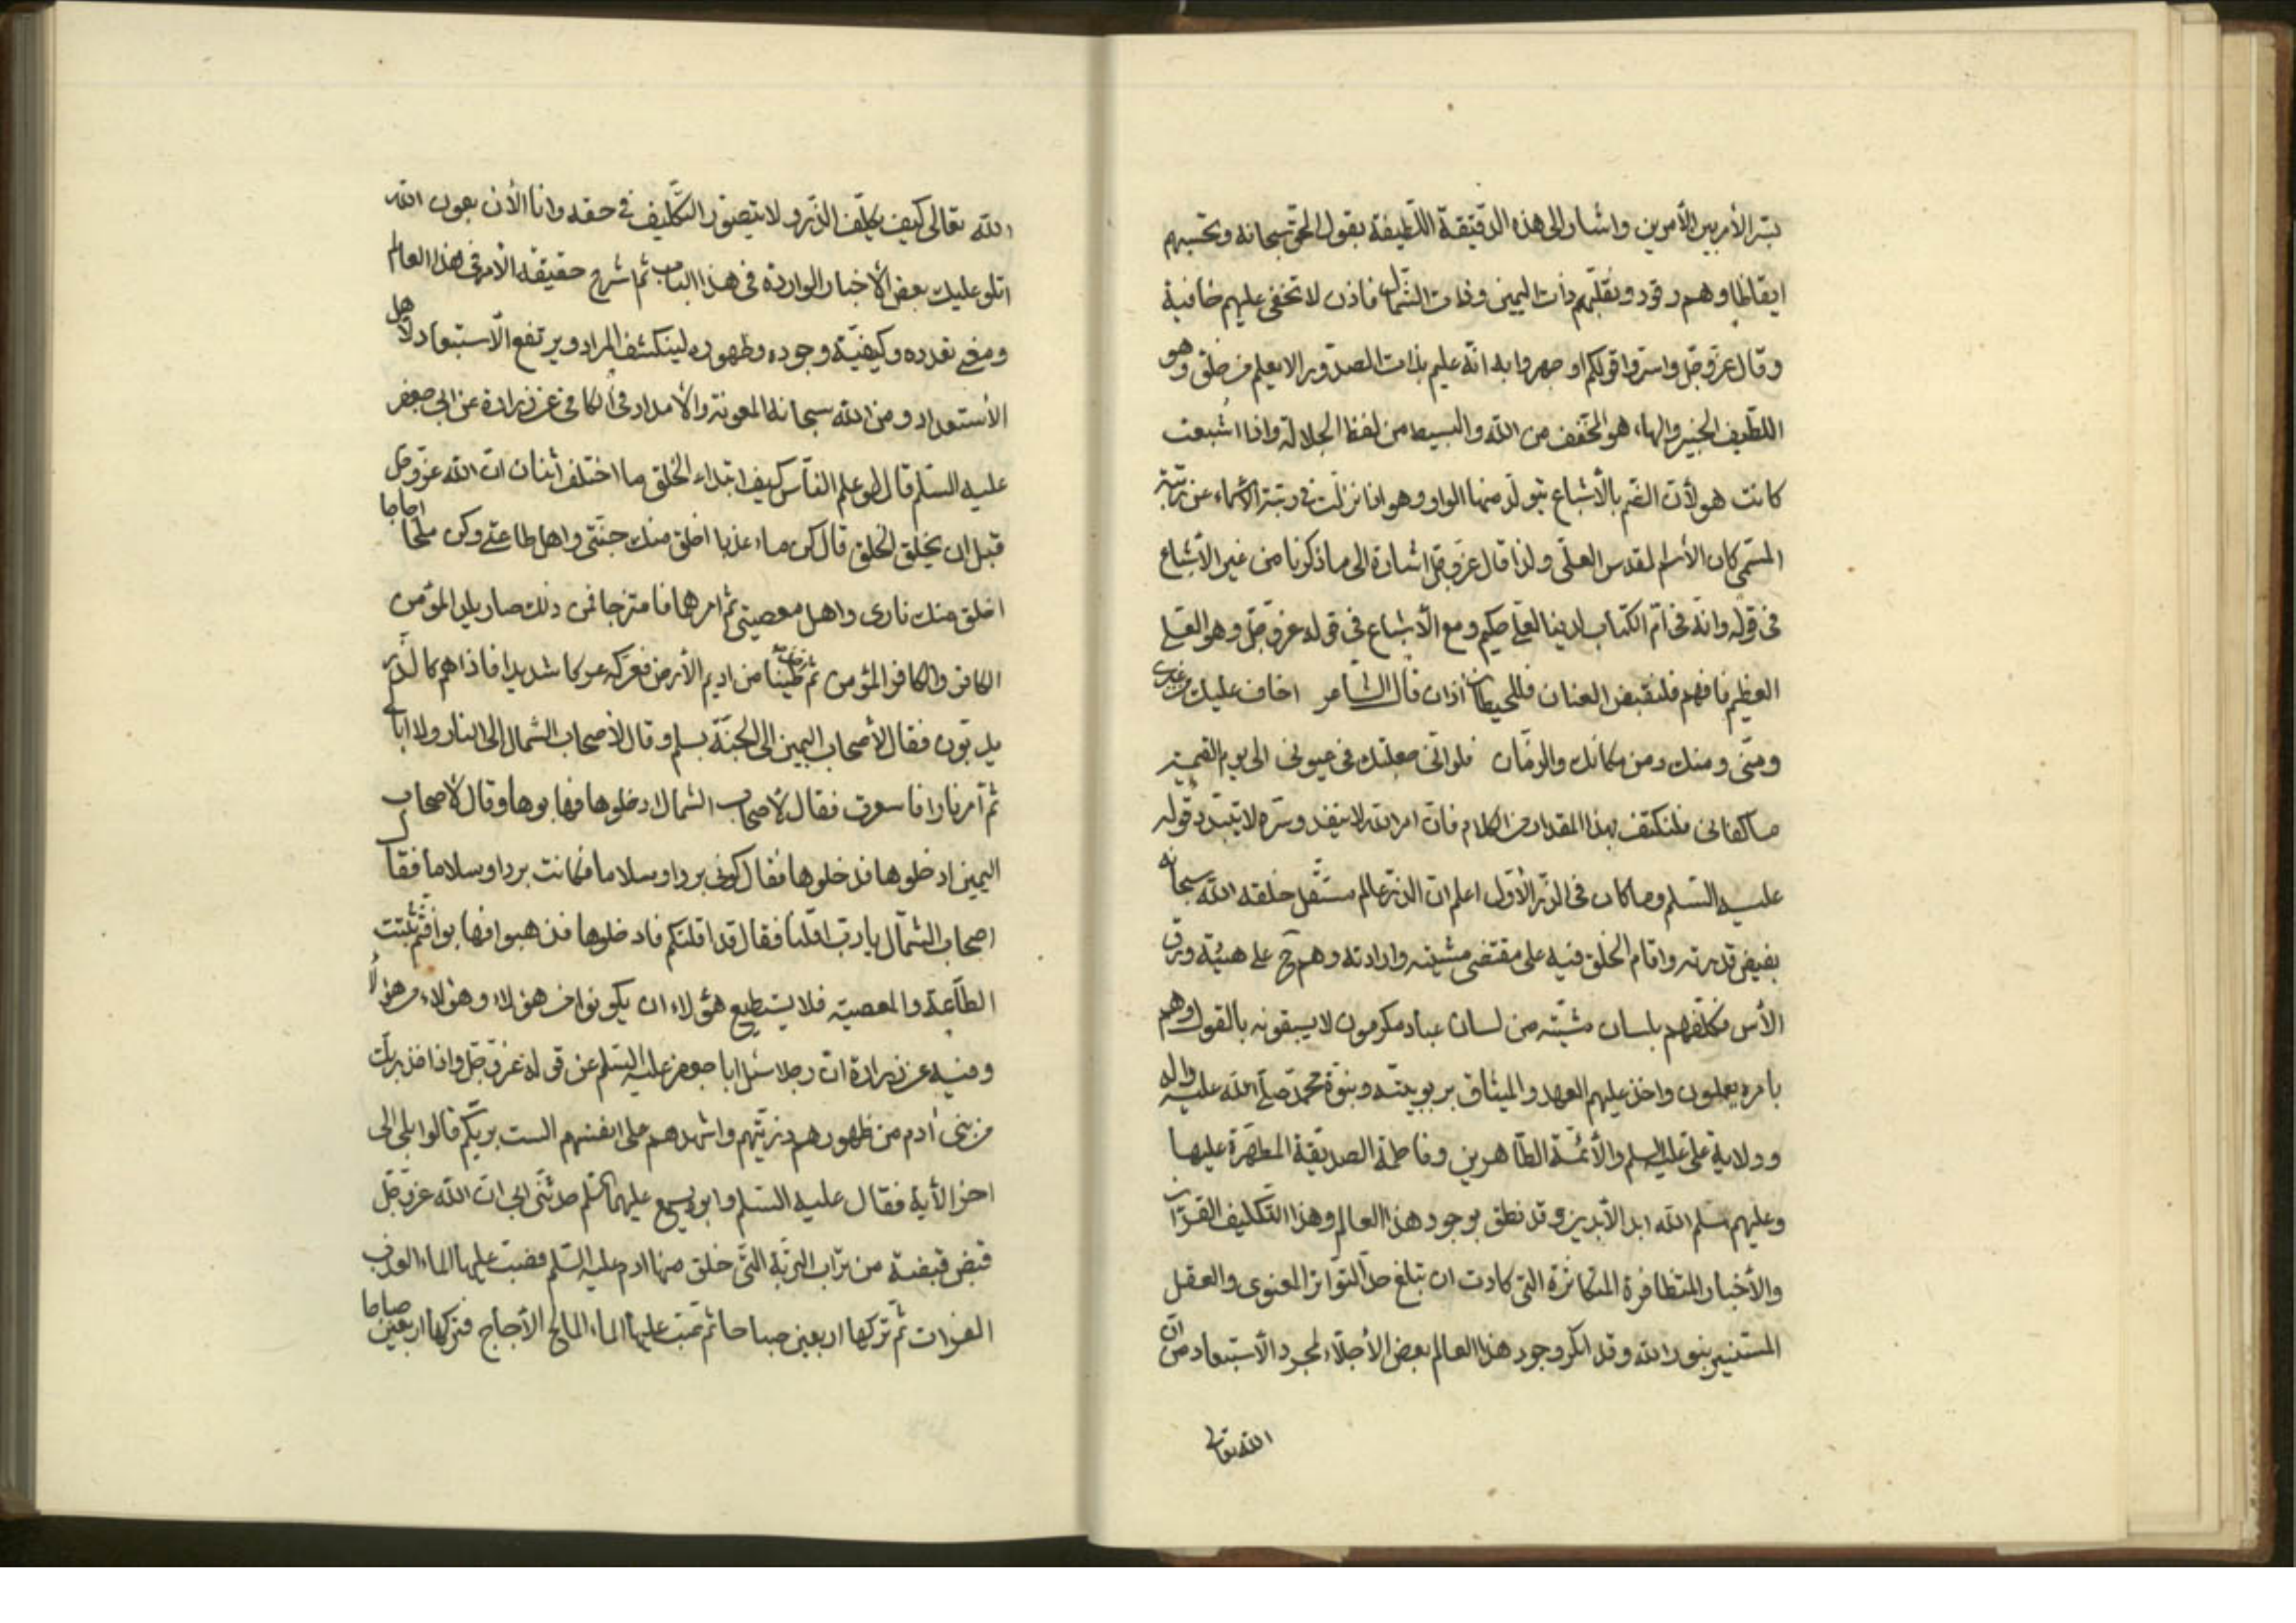 بسّر الأمر بين الأمرين واشار الى هذه الدقيقة اللطيفة بقول الحق سبحانه وتحسبهم
ايقاظا وهم رقود ونقلبهم ذات اليمين وذات الشمال فاذن لا تخفى عليهم خافية
وقال عزوجل واسروا قولكم او جهروا به انه عليم بذات الصدور الا يعلم من خلق وهو
اللطيف الخبير والهاء هو المخفف من الله والبسيط من لفظ الجلالة واذا اشبعت
كانت هو لأن الضم بالأشباع يتولد منها الواو وهو اذا نزلت في رتبة الاسماء عن رتبة
المسمى كان الأسم المقدس العلي ولذا قال عزوجل اشارة الى ما ذكرنا من غير الأشباع
في قوله وانه في ام الكتاب لدينا لعلي حكيم ومع الأشباع في قوله عزوجل وهو العلي
العظيم فافهم فلنقبض العنان فللحيطان أذان قال الشاعر اخاف عليك من غيري
ومنى ومنك ومن مكانك والزمان فلو اني جعلتك في عيوني الى يوم القيمة
ما كفاني فلنكتف بهذا المقدار من الكلام فان امر الله لا ينفد وسره لا يتبدد قوله
عليه السلم وما كان في الذر الأول اعلم ان الذر عالم مستقل خلقه الله سبحانه
بفيض قدرته واقام الخلق فيه على مقتضى مشيته وارادته وهم ح على هيئة ورق
الأس فكلفهم بلسان مشيته من لسان عباد مكرمون لا يسبقونه بالقول وهم
بامره يعملون واخذ عليهم العهد والميثاق بربوبيته وبنوة محمد صلى الله عليه واله
وولاية علي عليه السلم والأئمة الطاهرين وفاطمة الصديقة المطهرة عليها
وعليهم سلم الله ابد الأبدين وقد نطق بوجود هذا العالم وهذا التكليف القرآن
والأخبار المتظافرة المتكاثرة التي كادت ان تبلغ حد التواتر المعنوى والعقل
المستنير بنور الله وقد انكر وجود هذا العالم بعض الأجلاء لمجرد الأستبعاد من ان
الله تعالى
الله تعالى كيف يكلف الذر ولا يتصور التكليف في حقه وانا الأن بعون الله
اتلو عليك بعض الأخبار الواردة في هذا الباب ثم اشرح حقيقة الأمر في هذا العالم
ومعنى تعدده وكيفية وجوده وظهوره لينكشف المراد ويرتفع الأستبعاد لأهل
الأستعداد ومن الله سبحانه المعونة والأمداد في الكافي عن زرارة عن ابي جعفر
عليه السلم قال لو علم الناس كيف ابتداء الخلق ما اختلف اثنان ان الله عزوجل
قبل ان يخلق الخلق قال كن ماء عذبا اخلق منك جنتي واهل طاعتي وكن ملحا اجاجا
اخلق منك نارى واهل معصيتي ثم امرهما فامتزجا فمن ذلك صار يلد المؤمن
الكافر والكافر المؤمن ثم اخذ طينا من اديم الأرض فعركه عركا شديدا فاذا هم كالذر
يدبون فقال لأصحاب اليمين الى الجنة بسلم وقال لأصحاب الشمال الى النار ولا ابالي
ثم امر نارا فاسعرت فقال لأصحاب الشمال ادخلوها فهابوها وقال لأصحاب
اليمين ادخلوها فدخلوها فقال كوني بردا وسلاما فكانت بردا وسلاما فقال
اصحاب الشمال يا رب اقلنا فقال قد اقلتكم فادخلوها فذهبوا فهابوا فثم ثبتت
الطاعة والمعصية فلا يستطيع هؤلاء ان يكونوا من هؤلاء وهؤلاء من هؤلاء
وفيه عن زرارة ان رجلا سئل ابا جعفر عليه السلم عن قوله عزوجل واذ اخذ ربك
من بني أدم من ظهورهم ذريتهم واشهدهم على انفسهم الست بربكم قالوا بلى الى
اخر الأية فقال عليه السلم وابوه يسمع عليهما السلم حدثني ابي ان الله عزوجل
قبض قبضة من تراب التربة التي خلق منها ادم عليه السلم فصب عليها الماء العذب
الفرات ثم تركها اربعين صباحا ثم صب عليها الماء المالح الأجاج فتركها اربعين صباحا